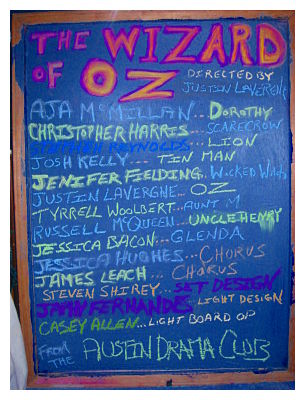 THE WIZARD
OF OZ
DIRECTED BY
JUSTIN LAVERGNE
AJA McMILLAN... DOROTHY
CHRISTOPHER HARRIS... SCARECROW
STEPHEN REYNOLDS... LION
JOSH KELLY... TIN MAN
JENIFER FIELDING... WICKED WITCH
JUSTIN LAVERGNE... OZ
TYRRELL WOOLBERT... AUNT M
RUSSELL McQUEEN... UNCLE HENRY
JESSICA BACON... GLENDA
JESSICA HUGHES... CHORUS
JAMES LEACH... CHORUS
STEVEN SHIREY... SET DESIGN
FERNANDES LIGHT DESIGN
CASEY ALLEN... LIGHT BOARD OP
FROM THE AUSTIN DRAMA CLUB